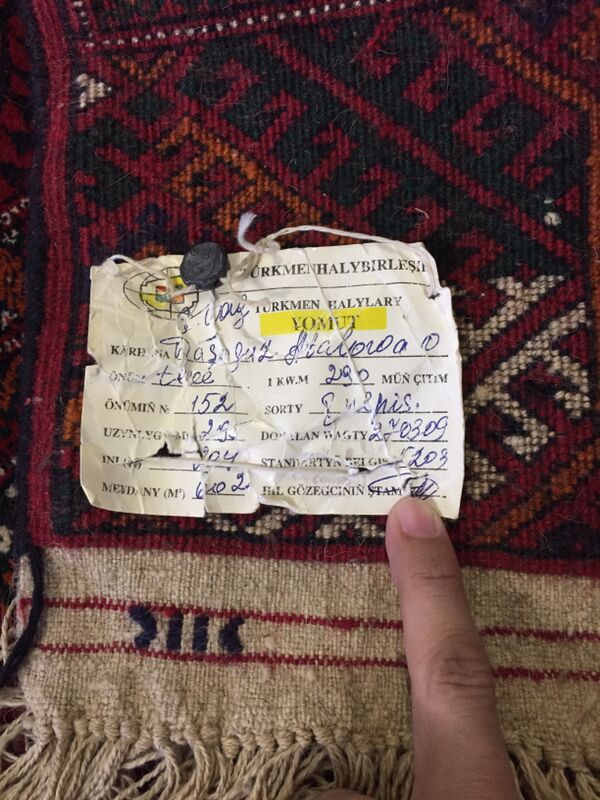 TÜRKMENHALYBIRLEŞIK
TÜRKMEN HALYLARY
YOMUT
KÄRH NA Daşoguz
ÖNÜM
1 KW.M 290 MÜŇ ÇITIM
ÖNÜMIŇ № 152
SORTY
UZYNLYGY M 295 DO ALAN WAGTY 270309
INI 204 STANDARTYŇ BELGIS 5203
MEYDANY (M²) 6.02 HIL GÖZEGÇINIŇ ŞTAM